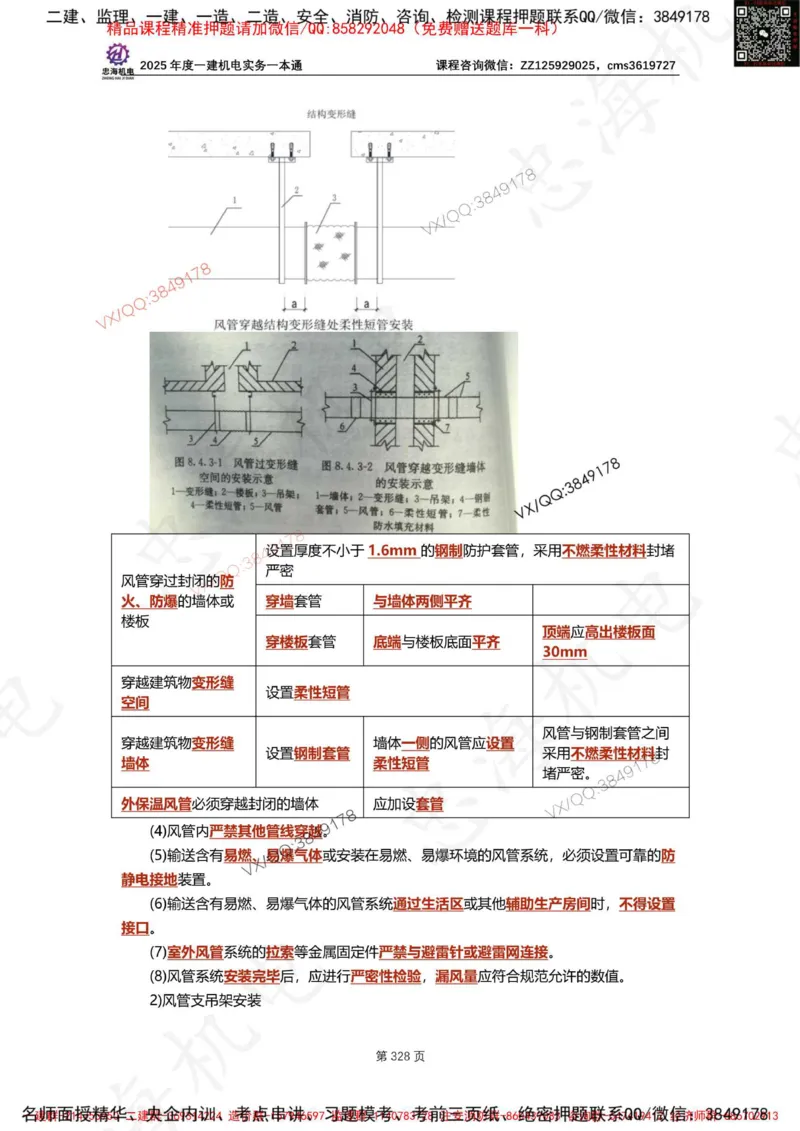 二建、监理、一建、一造、二造、安全、消防、咨询、检测课程押题联系QQ/微信：3849178
精品课程精准押题请加微信/QQ:858292048（免费赠送题库一科）
忠海机电
2025 年度一建机电实务一本通
课程咨询微信：ZZ125929025，cms3619727
结构变形缝
1
2
3
a
a
风管穿越结构变形缝处柔性短管安装
1
2
3
4
5
图 8.4.3-1 风管过变形缝
空间的安装示意
1—变形缝；2—楼板；3—吊架；
4—柔性短管；5—风管
1
2
4
3
5
6
7
图 8.4.3-2 风管穿越变形缝墙体
的安装示意
1—墙体；2—变形缝；3—吊架；4—钢制
套管；5—风管；6—柔性短管；7—柔性
防水填充材料
风管穿过封闭的防
火、防爆的墙体或
楼板
设置厚度不小于 1.6mm 的钢制防护套管，采用不燃柔性材料封堵
严密
穿墙套管
与墙体两侧平齐
穿楼板套管
底端与楼板底面平齐
顶端应高出楼板面
30mm
穿越建筑物变形缝
空间
设置柔性短管
穿越建筑物变形缝
墙体
设置钢制套管
墙体一侧的风管应设置
柔性短管
风管与钢制套管之间
采用不燃柔性材料封
堵严密。
外保温风管必须穿越封闭的墙体
应加设套管
(4)风管内严禁其他管线穿越。
(5)输送含有易燃、易爆气体或安装在易燃、易爆环境的风管系统，必须设置可靠的防
静电接地装置。
(6)输送含有易燃、易爆气体的风管系统通过生活区或其他辅助生产房间时，不得设置
接口。
(7)室外风管系统的拉索等金属固定件严禁与避雷针或避雷网连接。
(8)风管系统安装完毕后，应进行严密性检验，漏风量应符合规范允许的数值。
2)风管支吊架安装
第 328 页
名师面授精华、央企内训、考点串讲、习题模考、考前三页纸、绝密押题联系QQ/微信：3849178
VX/QQ:3849178
VX/QQ:3849178
VX/QQ:3849178
VX/QQ:3849178
VX/QQ:3849178
忠海机电